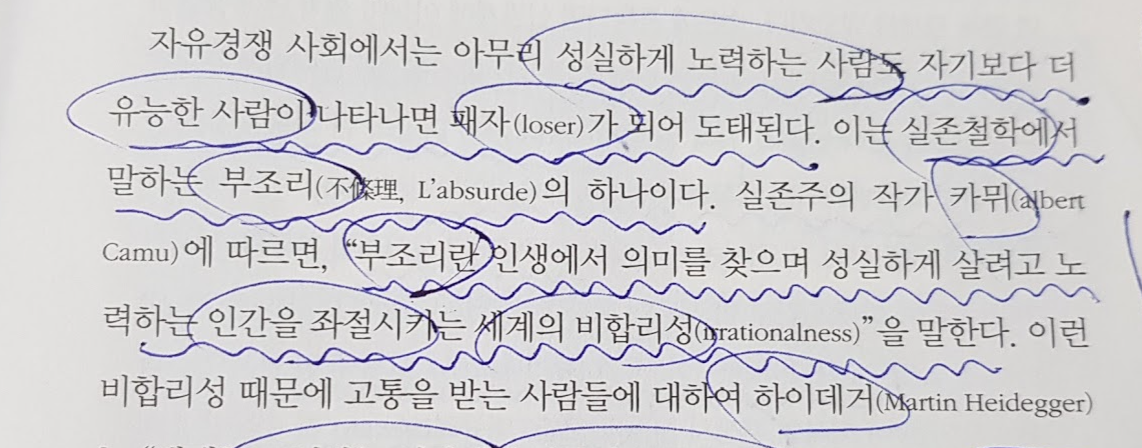 자유경쟁 사회에서는 아무리 성실하게 노력하는 사람도 자기보다 더
유능한 사람이 나타나면 패자(loser)가 되어 도태된다. 이는 실존철학에서
말하는 부조리(不條理, L'absurde)의 하나이다. 실존주의 작가 카뮈(albert
Camu)에 따르면, “부조리란 인생에서 의미를 찾으며 성실하게 살려고 노
력하는 인간을 좌절시키는 세계의 비합리성(irrationalness)”을 말한다. 이런
비합리성 때문에 고통을 받는 사람들에 대하여 하이데거(Martin Heidegger)